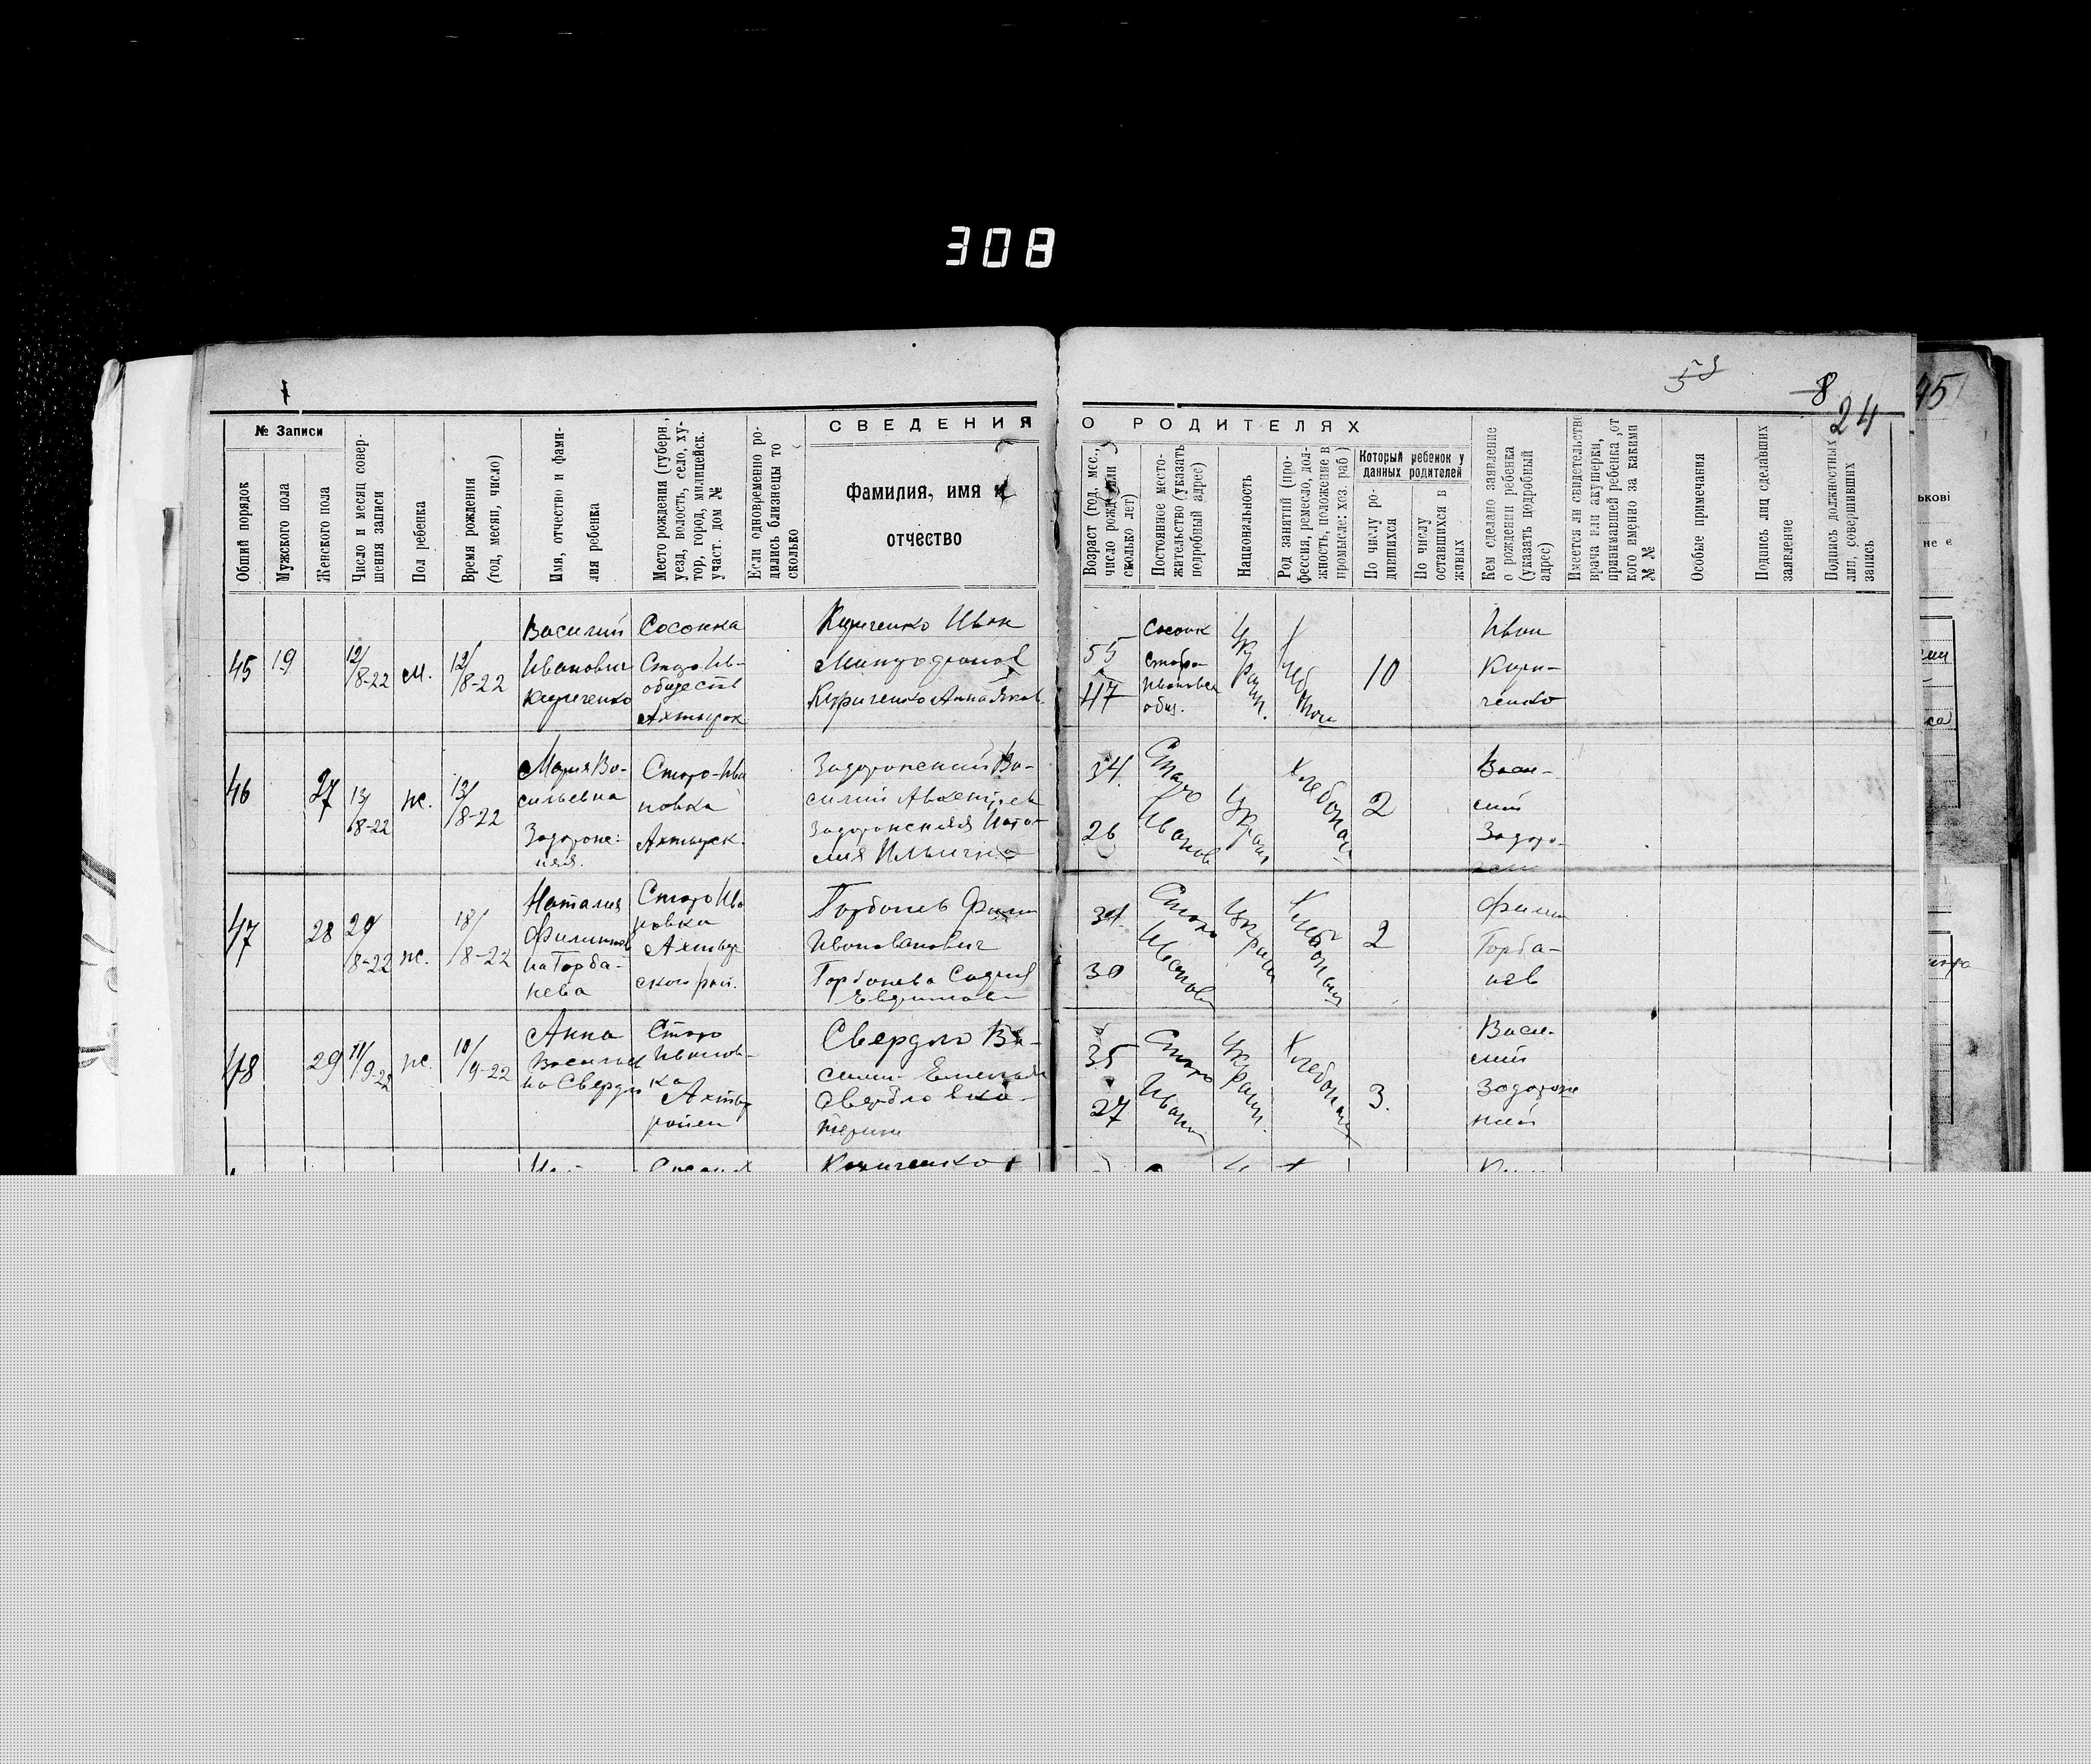 308
8
24
45
СВЕДЕНИЯ О РОДИТЕЛЯХ
№ Записи
Общий порядок
Мужского пола
Женского пола
Число и месяц совер-
шения записи
Пол ребенка
Время рождения
(год, месяц, число)
Имя, отчество и фами-
лия ребенка
Место рождения (губерн.,
уезд, волость, село, ху-
тор, город, милицейск.
участ. дом №
Если одновременно ро-
дились близнецы то
сколько
Фамилия, имя и
отчество
Возраст (год, мес.,
число рожд. или
сколько лет)
Постоянное место-
жительство (указать
подробный адрес)
Национальность
Род занятий (про-
фессия, ремесло, дол-
жность, положение в
промысле: хоз. раб)
Который ребенок у
данных родителей
По числу ро-
дившихся
По числу
оставшихся в
живых
Кем сделано заявление
о рождении ребенка
(указать подробный
адрес)
Имеется ли свидетельство
врача или акушерки,
принимавшей ребенка, от
кого именно за какими
№№
Особые примечания
Подпись лиц сделавших
заявление
Подпись должностных
лиц, совершивших
запись
ькові
не є
45
19
12/8-22
м.
12/8-22
Василий
Иванович
Кириченко
Сосонка
Старо Ив-
обществ
Ахтырск
Кириченко Иван
Митрофанов
Кириченко Анна Яков.
55
47
Сосонк
Старо-
Ивановск
общ.
Украин.
10
Иван
Кири-
ченко
46
27
13/8-22
ж.
13/8-22
Мария Ва-
сильевна
Задорож-
няя.
Старо-Ива
новка
Ахтырск.
Задорожний Ва-
силий
Задорожняя Ната-
лия Ильинична
34
26
Старо
Иванов
Украин
Хлебопаш
2
Васи-
лий
Задоро-
47
28
29/8-22
ж.
18/8-22
Наталия
Филиппов
на Горба-
нева
Старо Ива
новка
Ахтыр
ского рай.
Горбанев Филип
Иванович
Горбанева София
34
30
Старо
Иванов
Украин
Хлебопаш
2
Филип
Горба-
нев
48
29
11/9-22
ж.
10/9-22
Анна
Васильев
на Свердло
Старо
Иванов-
ка
Ахтыр
район
Свердло Ва-
силий
Свердло Ека-
терина
35
27
Старо
Иванов
Украин.
Хлебопаш
3.
Васи-
лий
Задорож
ний
Кириченко